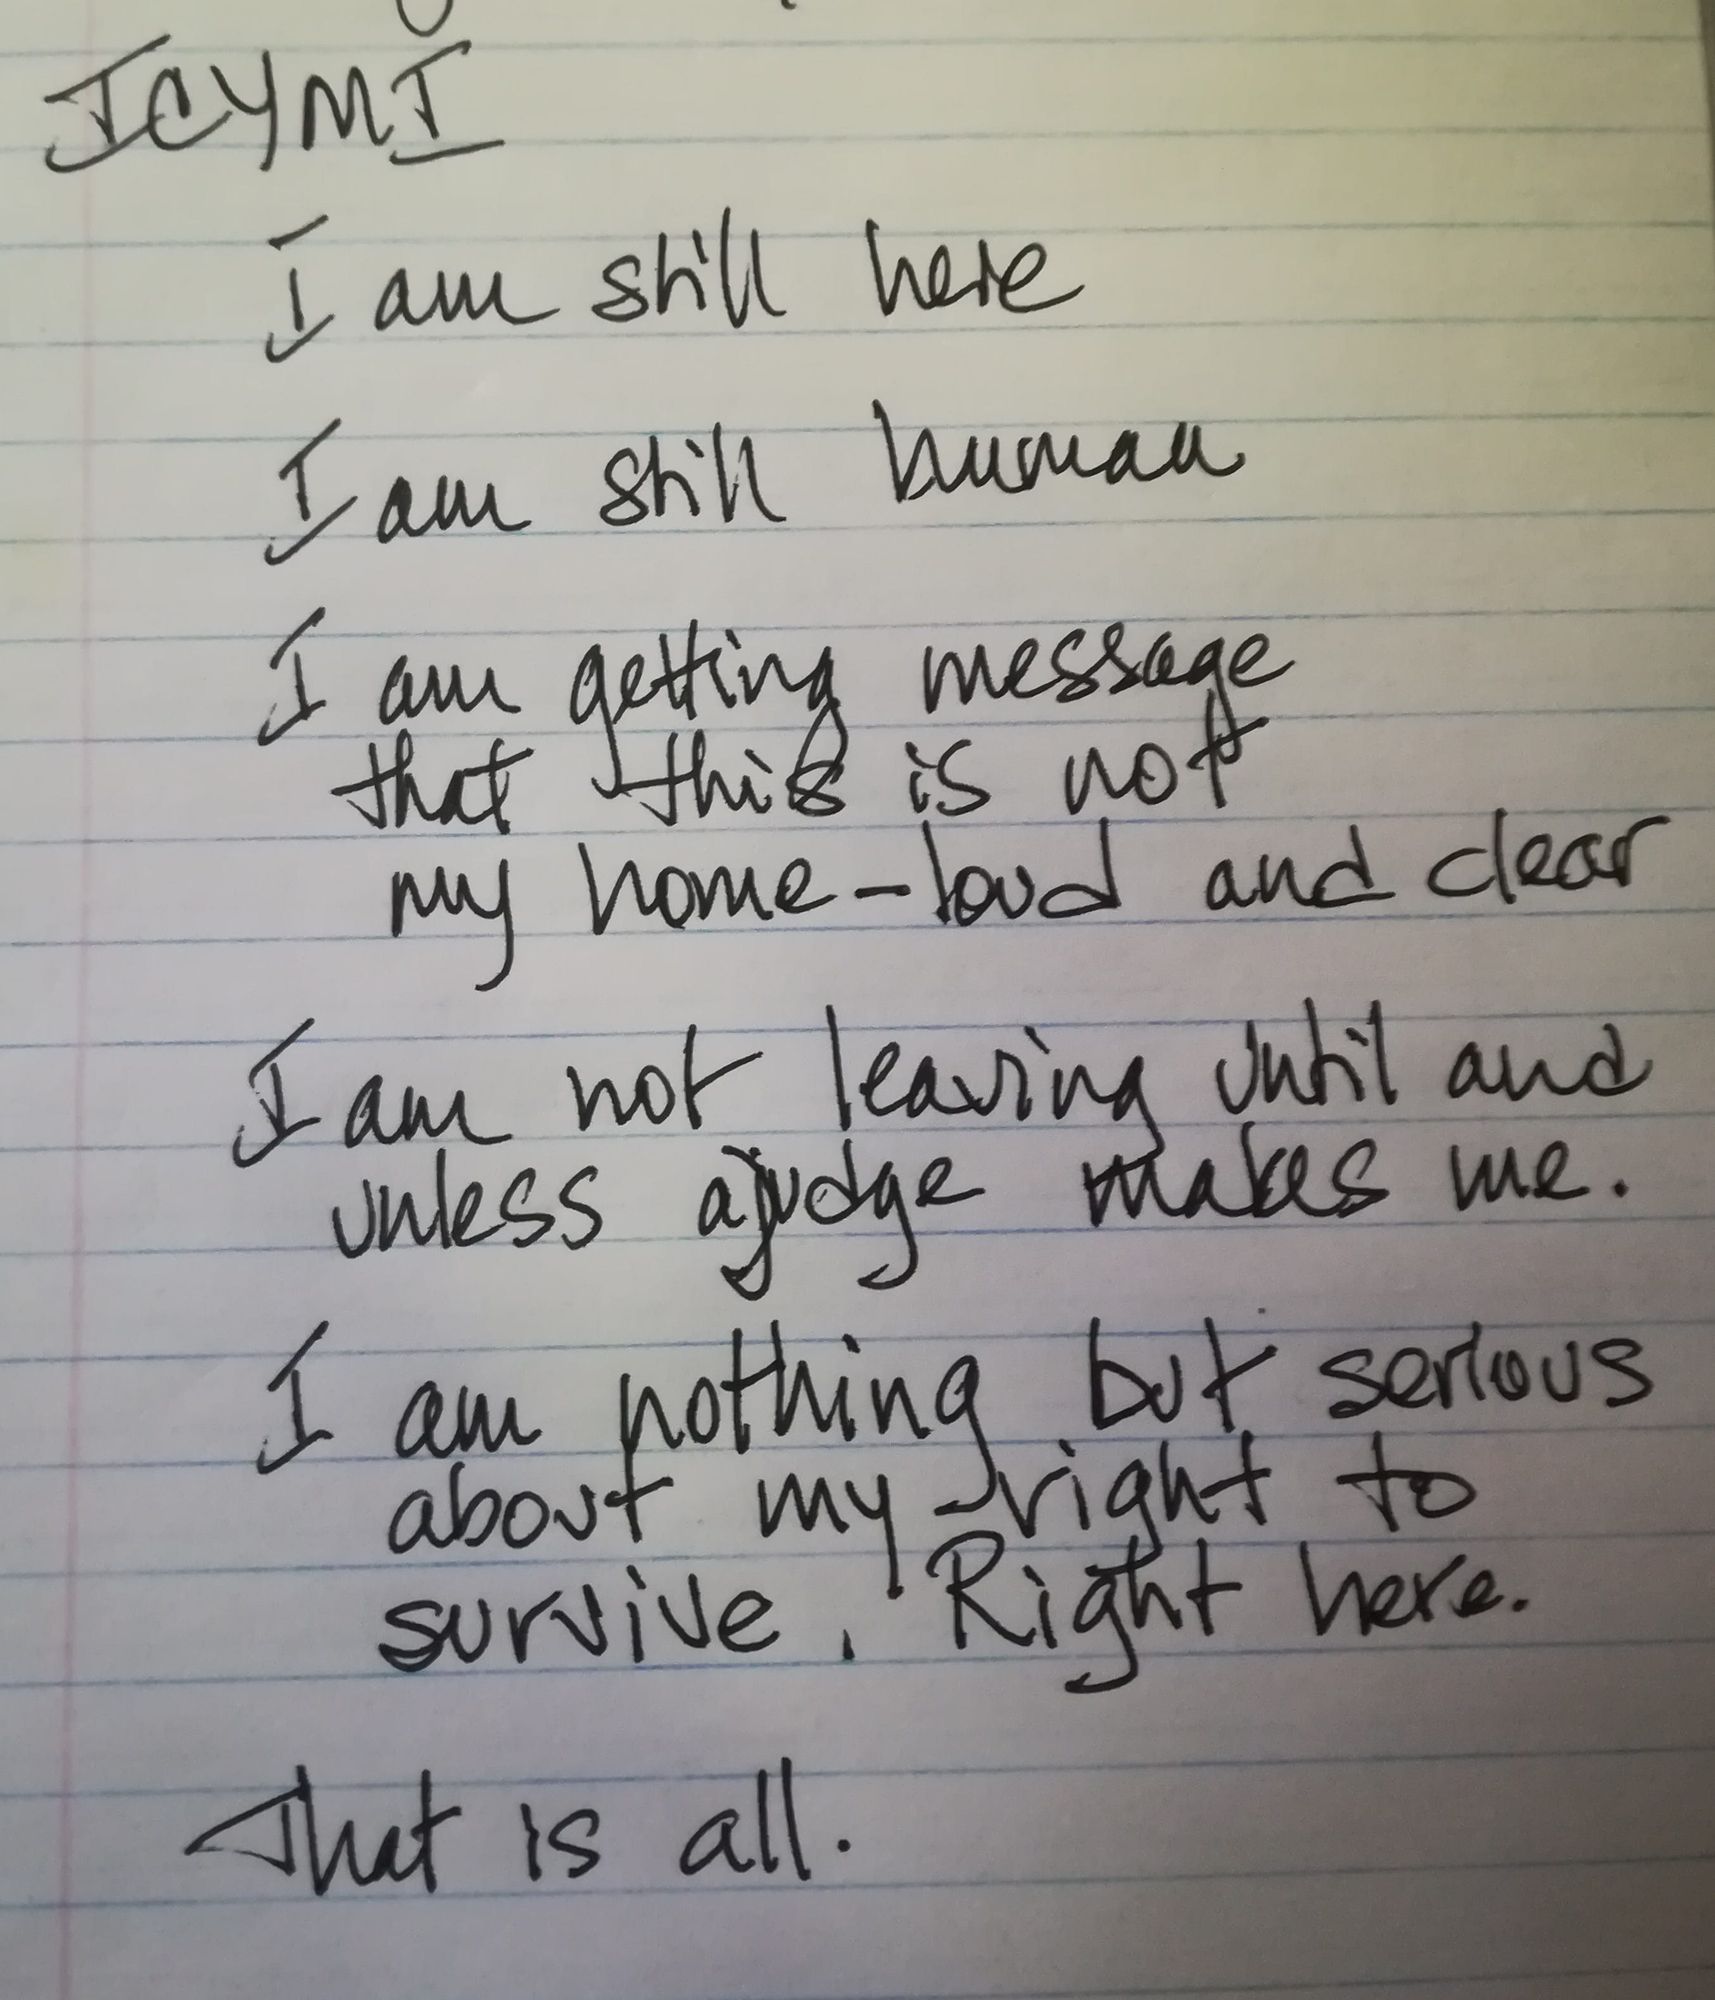 ICYMI
I am still here
I am still human
I am getting message
that this is not
my home - loud and clear
I am not leaving until and
unless a judge makes me.
I am nothing but serious
about my right to
survive. Right here.
That is all.